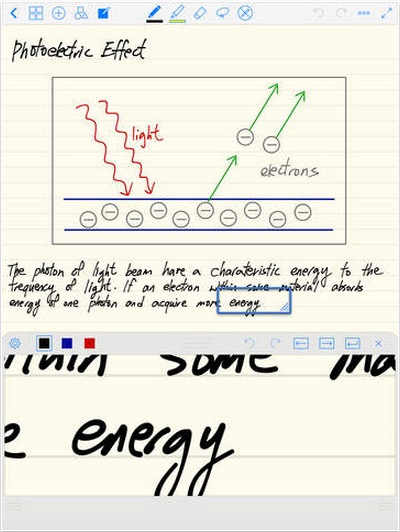 Photoelectric Effect
light
electrons
The photon of light beam have a charateristic energy to the
frequency of light. If an electron within some material absorbs
energy of one photon and acquire more energy
within some ma
e energy